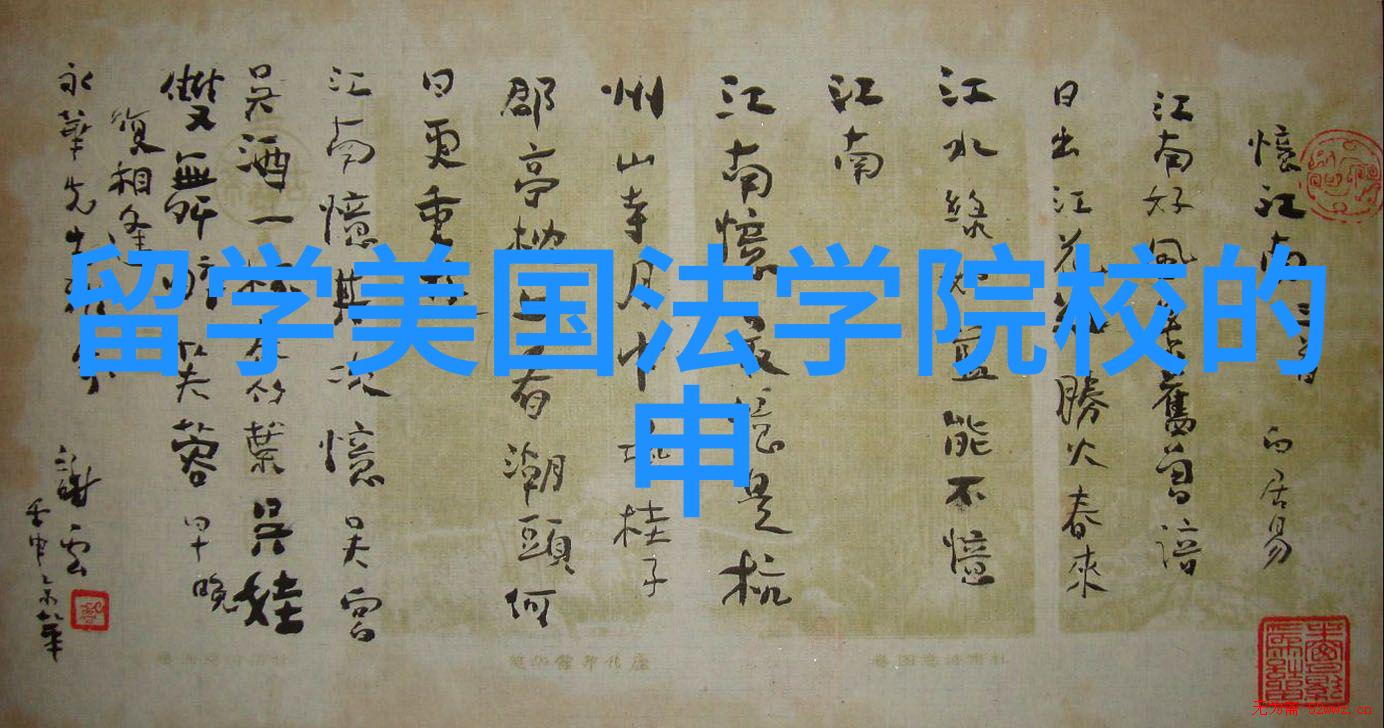 留学美国法学院校的
申
憶江南三首 白居易
江南好風景舊曾諳
日出江花紅勝火春來
江水綠如藍能不憶
江南
江南憶最憶是杭
州山寺月中桂子
郡亭枕上看潮頭何
日更重
江南憶其次憶吳宮
吳酒一杯春竹葉吳娃
雙芙蓉早晚
復相逢
永華先生
謝雲